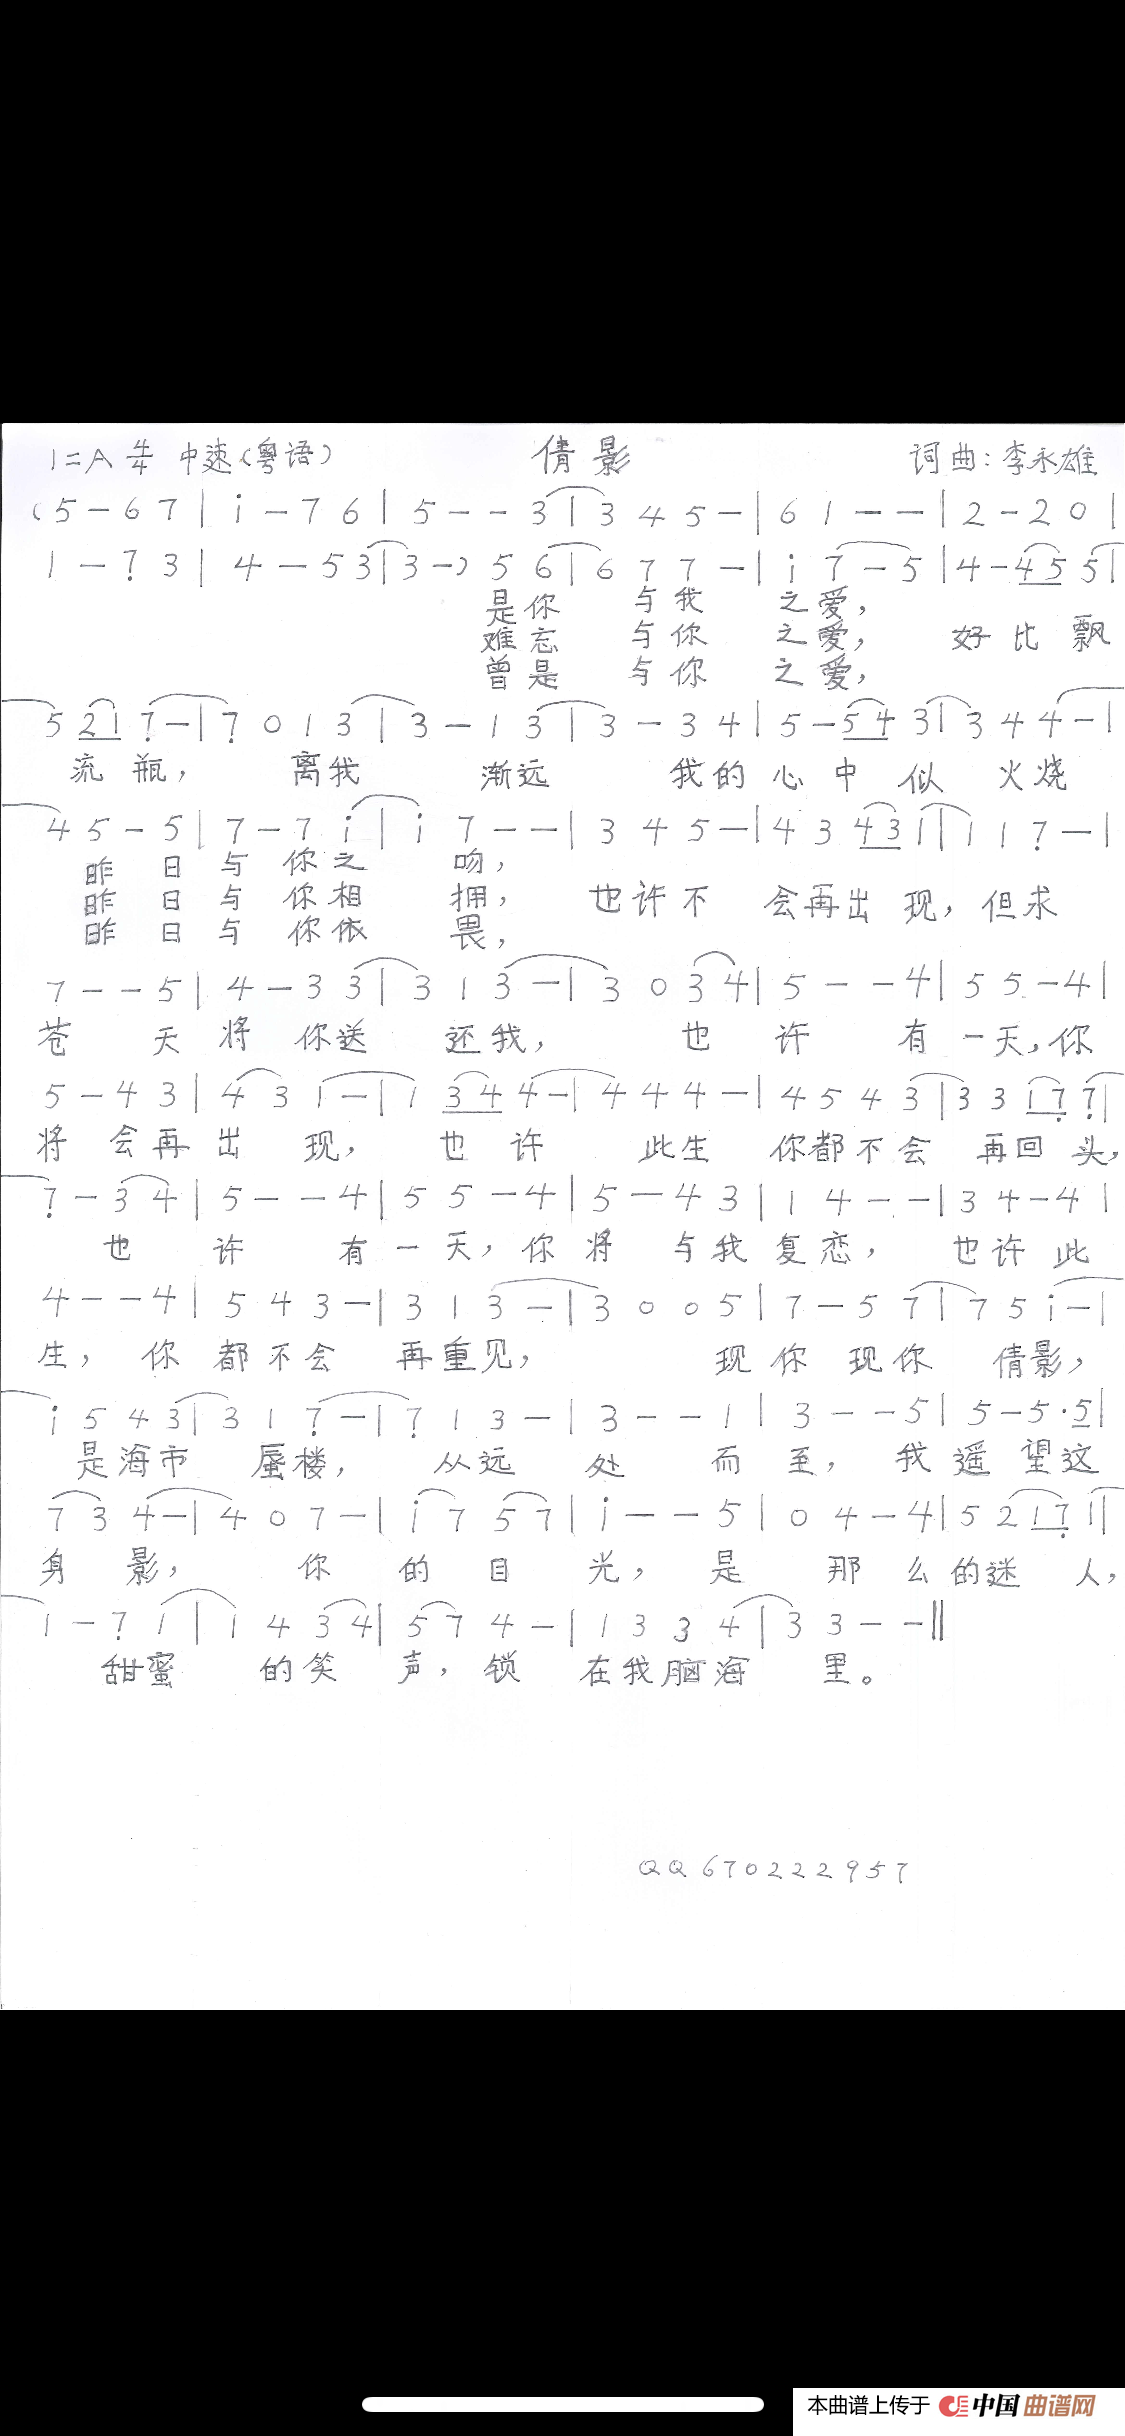 1=A 4/4 中速(粤语) 倩影 词曲:李永雄
(5 - 6 7 | i - 7 6 | 5 - - 3 | 3 4 5 - | 6 1 - - | 2 - 2 0 |
1 - 7̣ 3 | 4 - 5 3 | 3 -) 5 6 | 6 7 7 - | i 7 - 5 | 4 - 4 5 5 |
是你 与我 之爱,
难忘 与你 之爱, 好比飘
曾是 与你 之爱,
5 2 1 7̣ - | 7̣ 0 1 3 | 3 - 1 3 | 3 - 3 4 | 5 - 5 4 3 | 3 4 4 - |
流瓶, 离我 渐远 我的心中似 火烧
4 5 - 5 | 7 - 7 i | i 7 - - | 3 4 5 - | 4 3 4 3 1 | 1 1 7̣ - |
昨日与你之 吻,
昨日与你相 拥, 也许不 会再出现, 但求
昨日与你依 畏,
7 - - 5 | 4 - 3 3 | 3 1 3 - | 3 0 3 4 | 5 - - 4 | 5 5 - 4 |
苍 天 将 你送 还我, 也 许 有 一天,你
5 - 4 3 | 4 3 1 - | 1 3 4 4 - | 4 4 4 - | 4 5 4 3 | 3 3 1 7̣ 7̣ |
将 会再 出 现, 也 许 此生 你都不会 再回头,
7̣ - 3 4 | 5 - - 4 | 5 5 - 4 | 5 - 4 3 | 1 4 - - | 3 4 - 4 |
也 许 有 一天,你 将 与我 复恋, 也许此
4 - - 4 | 5 4 3 - | 3 1 3 - | 3 0 0 5 | 7 - 5 7 | 7 5 i - |
生, 你 都不会 再重见, 现 你 现你 倩影,
i 5 4 3 | 3 1 7̣ - | 7̣ 1 3 - | 3 - - 1 | 3 - - 5 | 5 - 5 · 5 |
是海市 蜃楼, 从远 处 而 至, 我 遥 望这
7 3 4 - | 4 0 7 - | i 7 5 7 | i - - 5 | 0 4 - 4 | 5 2 1 7̣ 1 |
身 影, 你 的 目 光, 是 那 么 的迷 人,
1 - 7̣ 1 | 1 4 3 4 | 5 7 4 - | 1 3 3 4 | 3 3 - - ‖
甜蜜 的笑 声, 锁 在我脑海 里。
QQ 670222957
本曲谱上传于 中国曲谱网